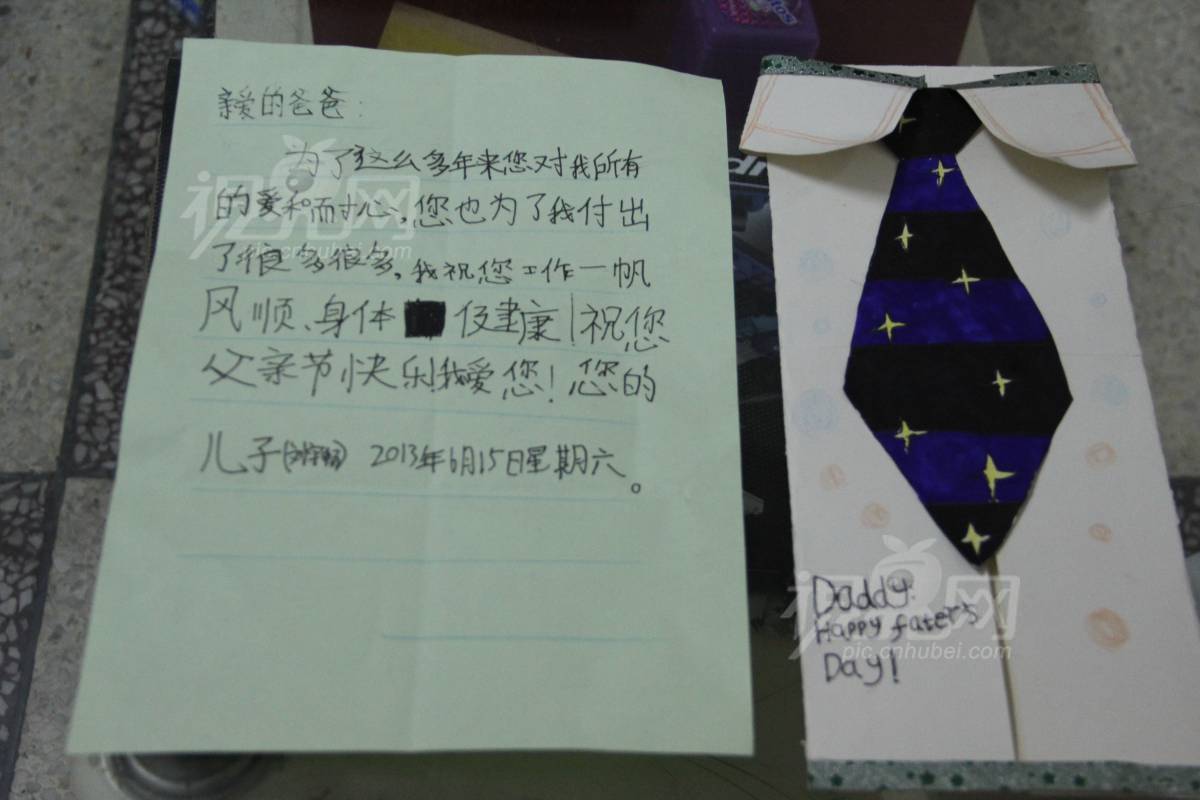 亲爱的爸爸:
为了这么多年来您对我所有
的爱和耐心,您也为了我付出
了很多很多,我祝您工作一帆
风顺、身体 健康!祝您
父亲节快乐我爱您!您的
儿子 2013年6月15日星期六。
Daddy:
Happy fater's
Day!
视界网
pic.cnhubei.com
视界网
pic.cnhubei.com